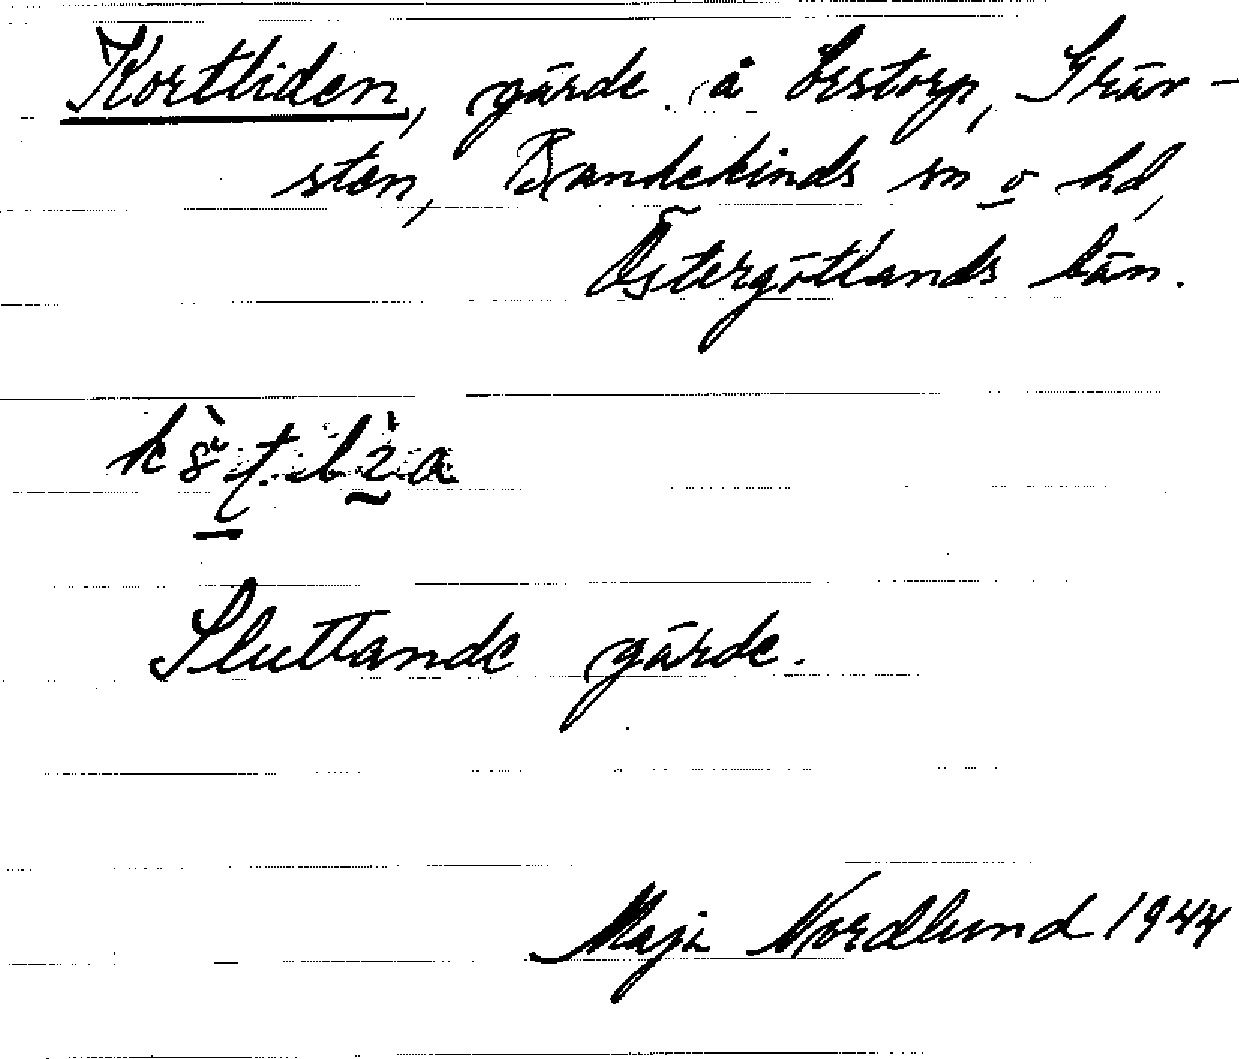 Kortliden, gärde å Örstorp, Gräv-
sten, Bandekinds sn o hd,
Östergötlands län.
Sluttande gärde.
Maja Nordlund 1944